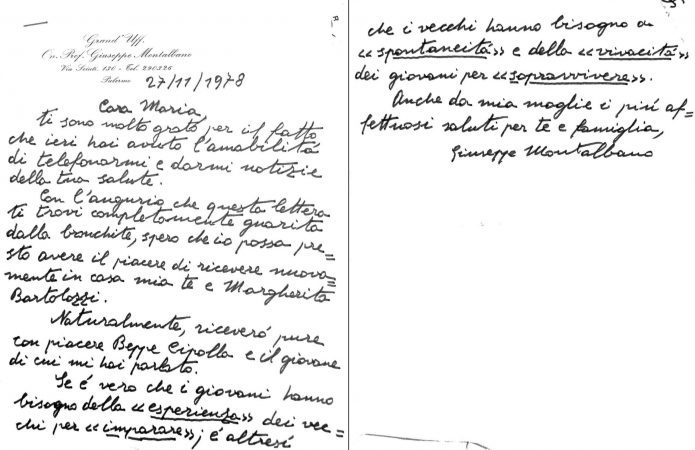 Grand'Uff.
On. Prof. Giuseppe Montalbano
Via Sciuti, 130 - Tel. 290326
Palermo
27/11/1978
Cara Maria,
ti sono molto grato per il fatto
che ieri hai avuto l'amabilitá
di telefonarmi e darmi notizie
della tua salute.
Con l'augurio che questa lettera
ti trovi completamente guarita
dalla bronchite, spero che io possa pre=
sto avere il piacere di ricevere nuova=
mente in casa mia te e Margherita
Bartolozzi.
Naturalmente, riceveró pure
con piacere Beppe Cipolla e il giovane
di cui mi hai parlato.
Se é vero che i giovani hanno
bisogno della «esperienza» dei vec=
chi per «imparare»; é altresí
che i vecchi hanno bisogno
«spontaneitá» e della «vivacitá»
dei giovani per «sopravvivere».
Anche da mia moglie i piú af=
fettuosi saluti per te e famiglia,
Giuseppe Montalbano